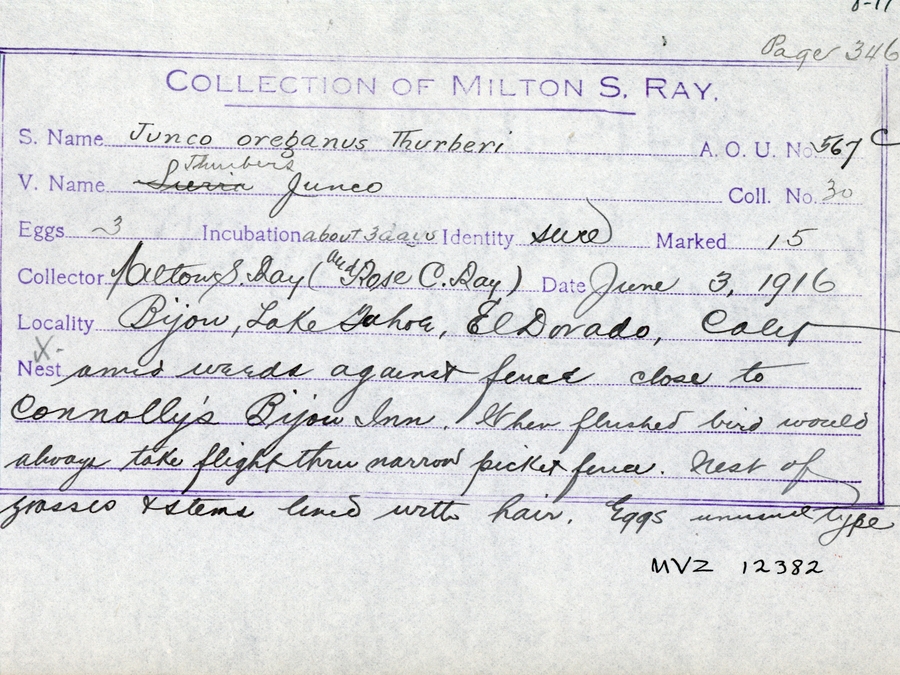 Page 346
COLLECTION OF MILTON S. RAY.
S. Name Junco oreganus Thurberi A. O. U. No. 567 c
Thurbers
V. Name Sierra Junco Coll. No. 30
Eggs 3 Incubation about 3 days Identity sure Marked 15
Collector Milton S. Ray (and Rose C. Ray) Date June 3, 1916
Locality Bijou, Lake Tahoe, El Dorado, Calif
X-
Nest amid weeds against fence close to
Connolly's Bijou Inn. When flushed bird would
always take flight thru narrow picket fence. Nest of
grasses & stems lined with hair. Eggs unusual type
MVZ 12382